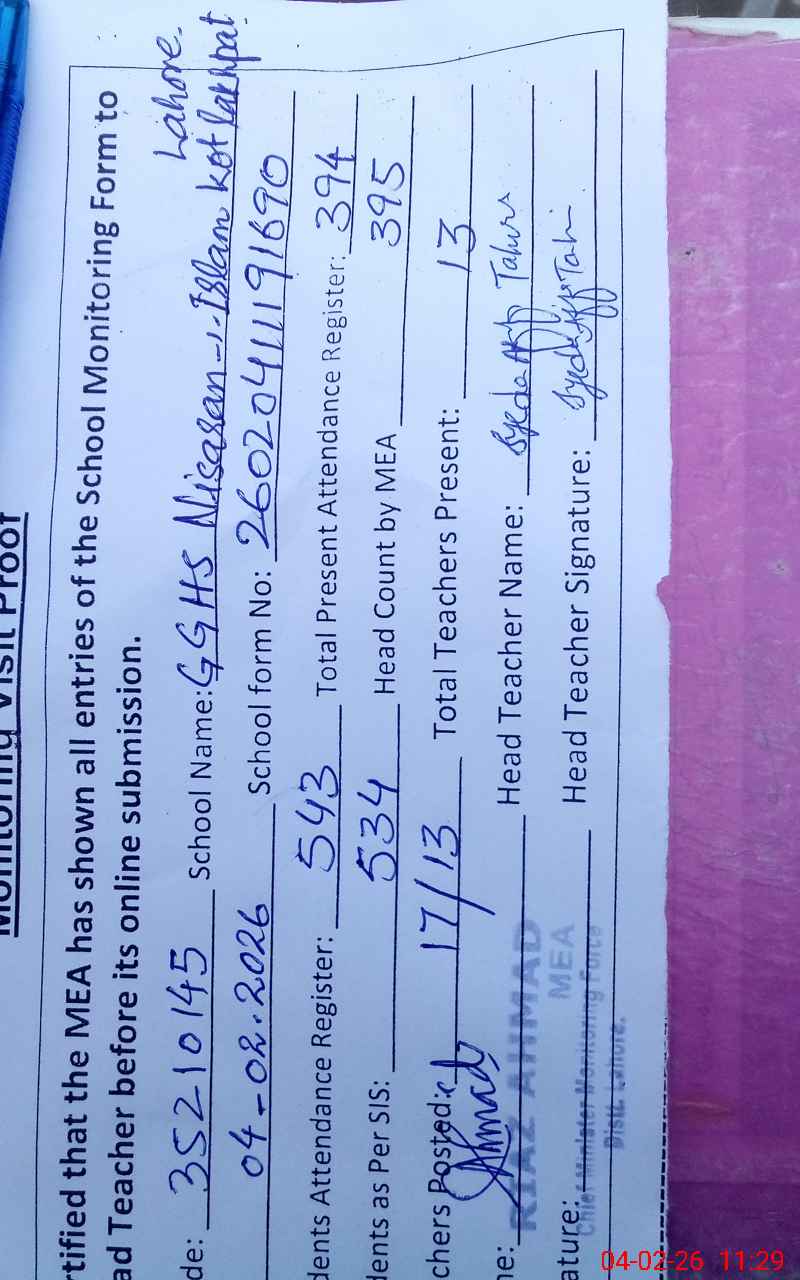 Monitoring Visit Proof
rtified that the MEA has shown all entries of the School Monitoring Form to
ad Teacher before its online submission.
Lahore.
de: 35210145 School Name: GGHS Islam Kot Lakhpat
04-02.2026 School form No: 260204111191690
dents Attendance Register: 543 Total Present Attendance Register: 394
dents as Per SIS: 534 Head Count by MEA 395
chers Posted: 17/13 Total Teachers Present: 13
ne: RIAZ AHMAD Head Teacher Name: Syeda Tahira
Ahmad
MEA
ature: Chief Minister Monitoring Force Head Teacher Signature: Syeda
Distt. Lahore.
04-02-26 11:29